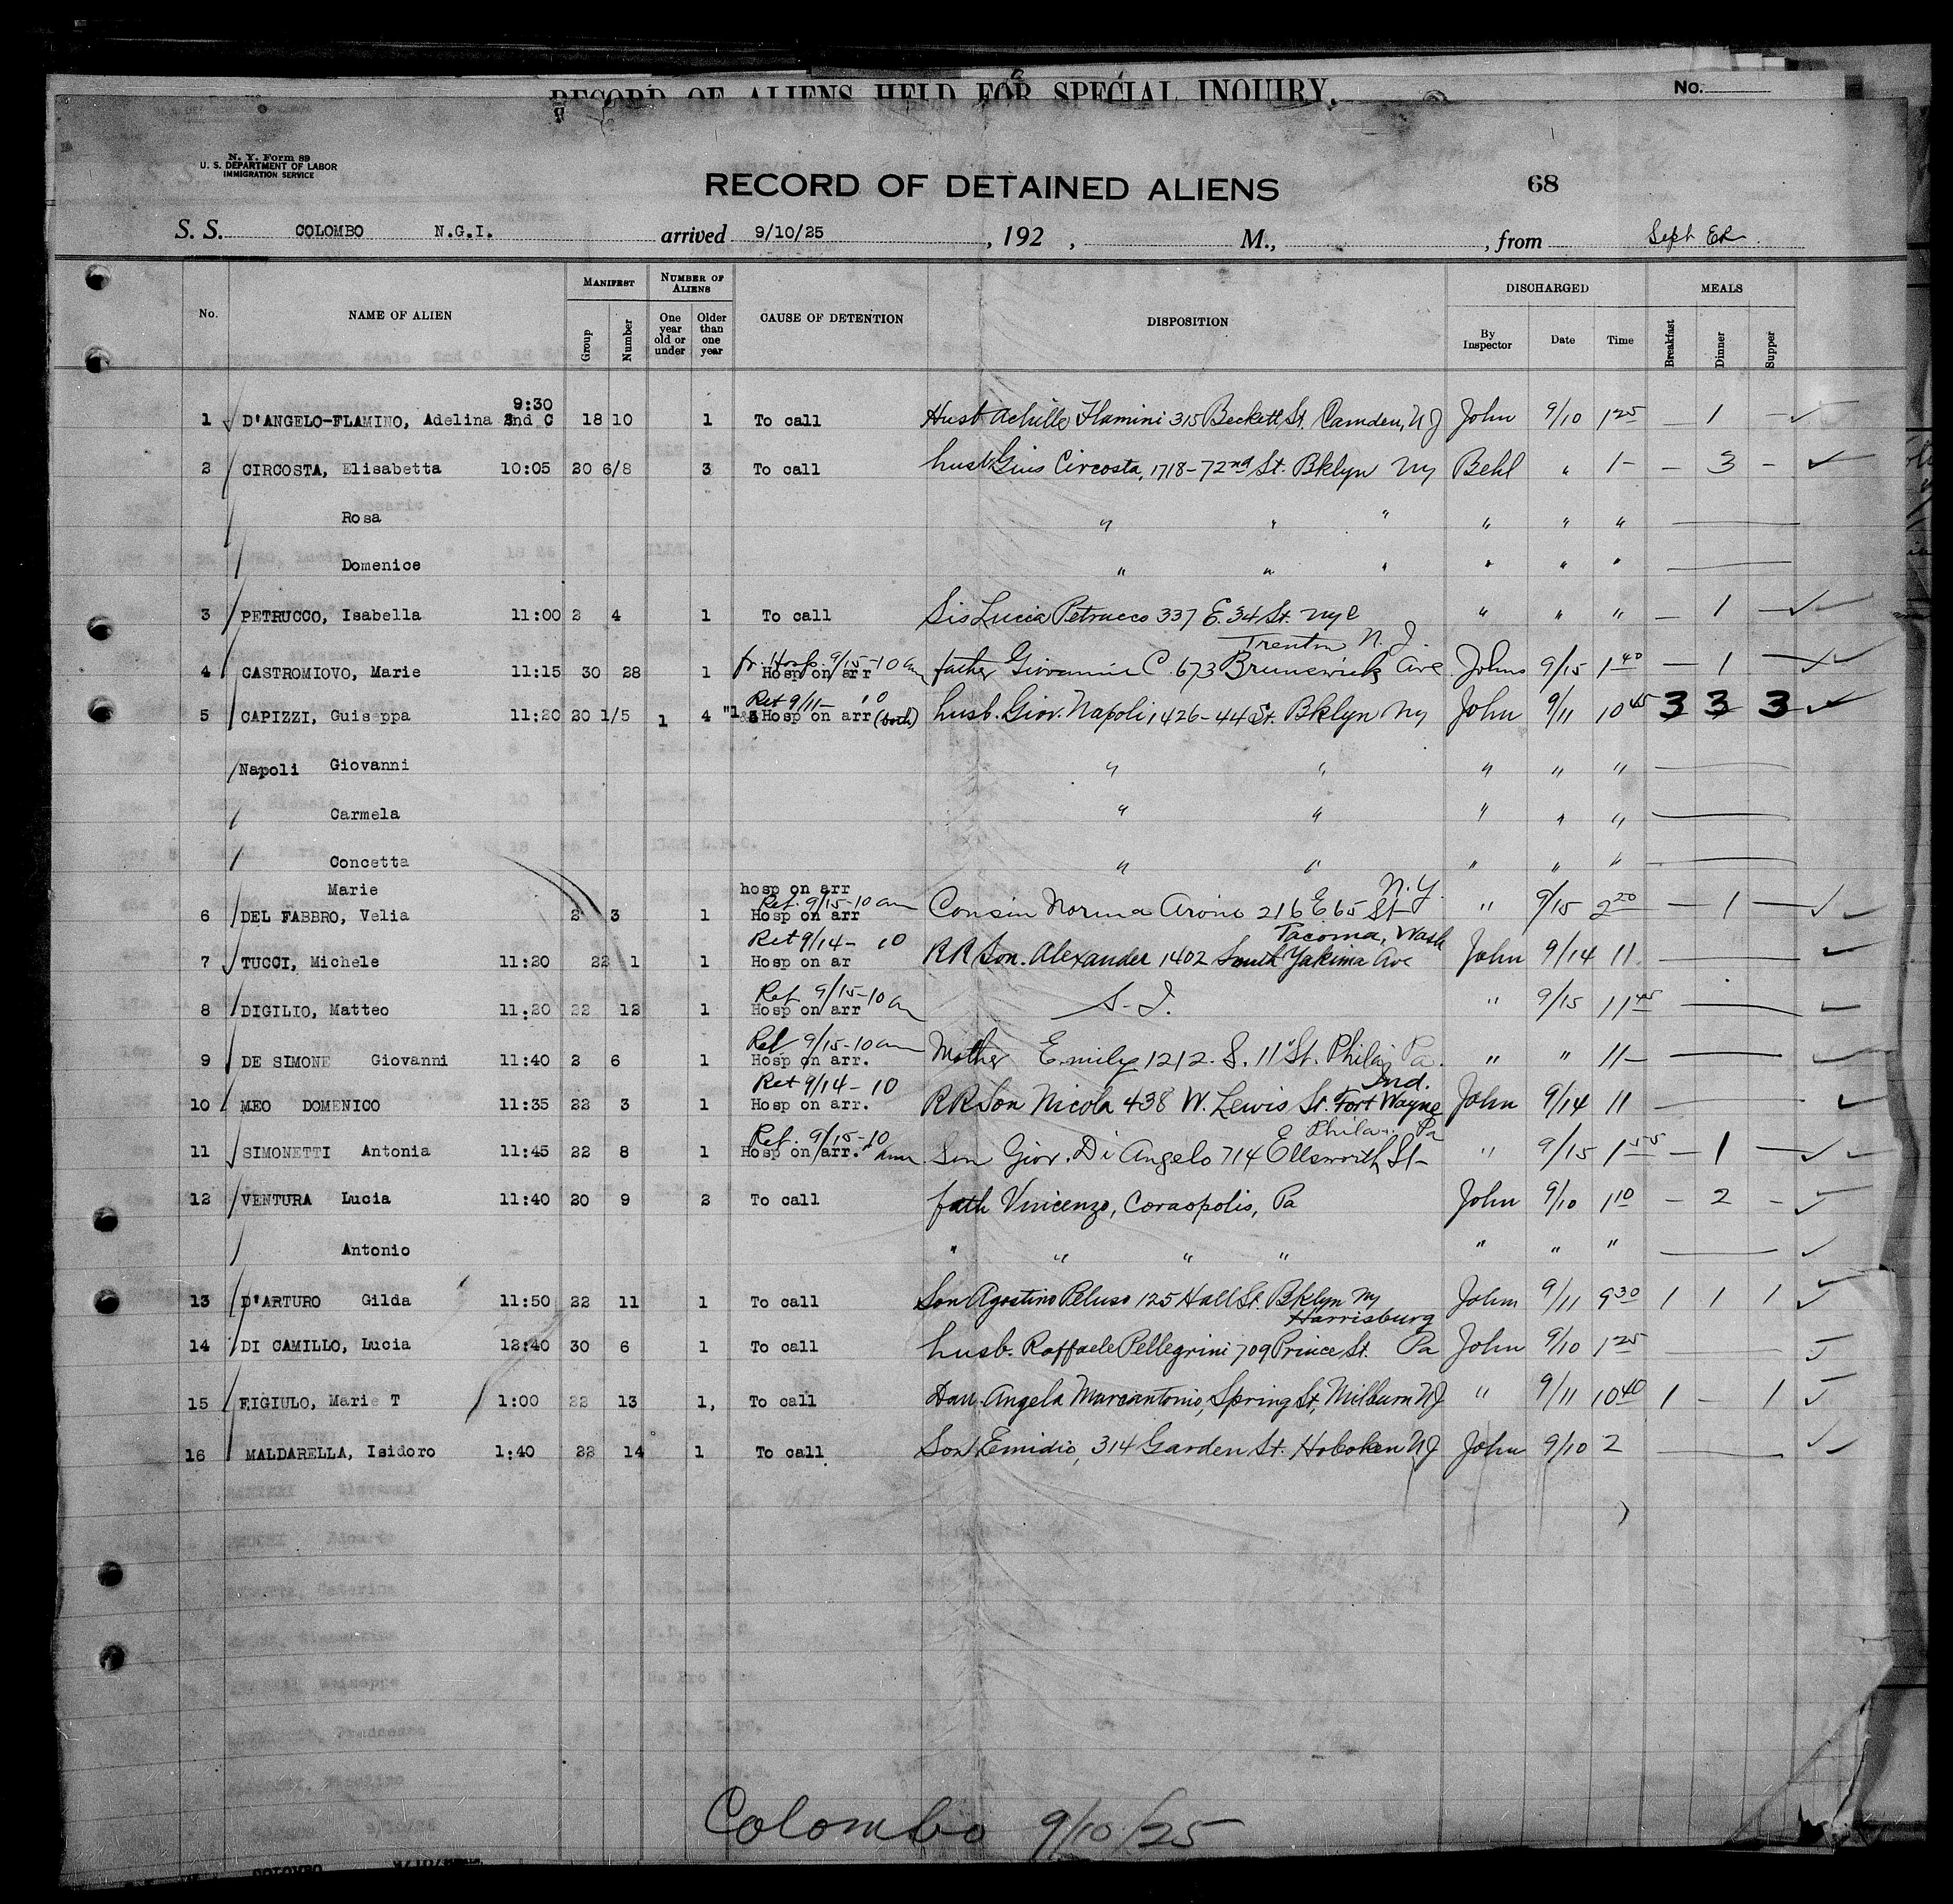 RECORD OF ALIENS HELD FOR SPECIAL INQUIRY.
No.
N. Y. Form 89
U. S. DEPARTMENT OF LABOR
IMMIGRATION SERVICE
RECORD OF DETAINED ALIENS
68
S. S. COLOMBO N.G.I. arrived 9/10/25 , 192 , M., , from Sept
No. NAME OF ALIEN MANIFEST NUMBER OF ALIENS CAUSE OF DETENTION DISPOSITION DISCHARGED MEALS
Group Number One year old or under Older than one year By Inspector Date Time Breakfast Dinner Supper
9:30
1 D'ANGELO-FLAMINO, Adelina 2nd C 18 10 1 To call Husb Achille Flamini 315 Beckett St. Camden, NJ John 9/10 1 25 — 1 —
2 CIRCOSTA, Elisabetta 10:05 20 6/8 3 To call husb Gius Circosta, 1718-72nd St. Bklyn Ny Behl " 1- — 3 —
Rosa " " " " " "
Domenice " " " " " "
3 PETRUCCO, Isabella 11:00 2 4 1 To call Sis Lucia Petrucco 337 E. 34 St. nyc " " " — 1 —
Trenton N. J.
fr. Hosp. 9/15-10 am
4 CASTROMIOVO, Marie 11:15 30 28 1 Hosp on arr father Giovannie C. 673 Brunswick Ave Johns 9/15 1 40 — 1 —
Ret 9/11- 10
5 CAPIZZI, Guiseppa 11:20 20 1/5 1 4 Hosp on arr (both) husb. Giov. Napoli 1426-44 St. Bklyn Ny John 9/11 10 45 3 3 3
Napoli Giovanni " " " " "
Carmela " " " " "
Concetta " " " " "
Marie hosp on arr N.Y.
Ret. 9/15-10 am
6 DEL FABBRO, Velia 2 3 1 Hosp on arr Cousin Norina Arone 216 E 65 St " 9/15 2 20 — 1 —
Ret 9/14- 10 Tacoma, Wash
7 TUCCI, Michele 11:20 22 1 1 Hosp on ar RR Son. Alexander 1402 South Yakima Ave John 9/14 11
Ret 9/15-10 a
8 DIGILIO, Matteo 11:20 22 12 1 Hosp on arr S. I. " 9/15 11 45
Ret 9/15-10 am
9 DE SIMONE Giovanni 11:40 2 6 1 Hosp on arr. Mother Emily 1212 S. 11" St. Phila; Pa. " " 11-
Ret 9/14- 10 Ind.
10 MEO DOMENICO 11:35 22 3 1 Hosp on arr. RR Son Nicola 438 W. Lewis St. Fort Wayne John 9/14 11
Ret. 9/15-10 am Phila. Pa
11 SIMONETTI Antonia 11:45 22 8 1 Hosp on arr. Son Giov. Di Angelo 714 Ellsworth St- " 9/15 1 55 — 1 —
12 VENTURA Lucia 11:40 20 9 2 To call fath Vincenzo, Coraopolis, Pa John 9/10 1 10 — 2 —
Antonio " " " " " " "
13 D'ARTURO Gilda 11:50 22 11 1 To call Son Agostino Peluso 125 Hall St. Bklyn Ny John 9/11 9 30 1 1 1
Harrisburg
14 DI CAMILLO, Lucia 12:40 30 6 1 To call husb. Raffaele Pellegrini 709 Prince St. Pa John 9/10 1 25
15 FIGIULO, Marie T 1:00 22 13 1, To call Dau. Angela Marcantonio, Spring St, Milburn NJ " 9/11 10 40 1 — 1
16 MALDARELLA, Isidoro 1:40 22 14 1 To call Son Emidio, 314 Garden St. Hoboken NJ John 9/10 2
Colombo 9/10/25